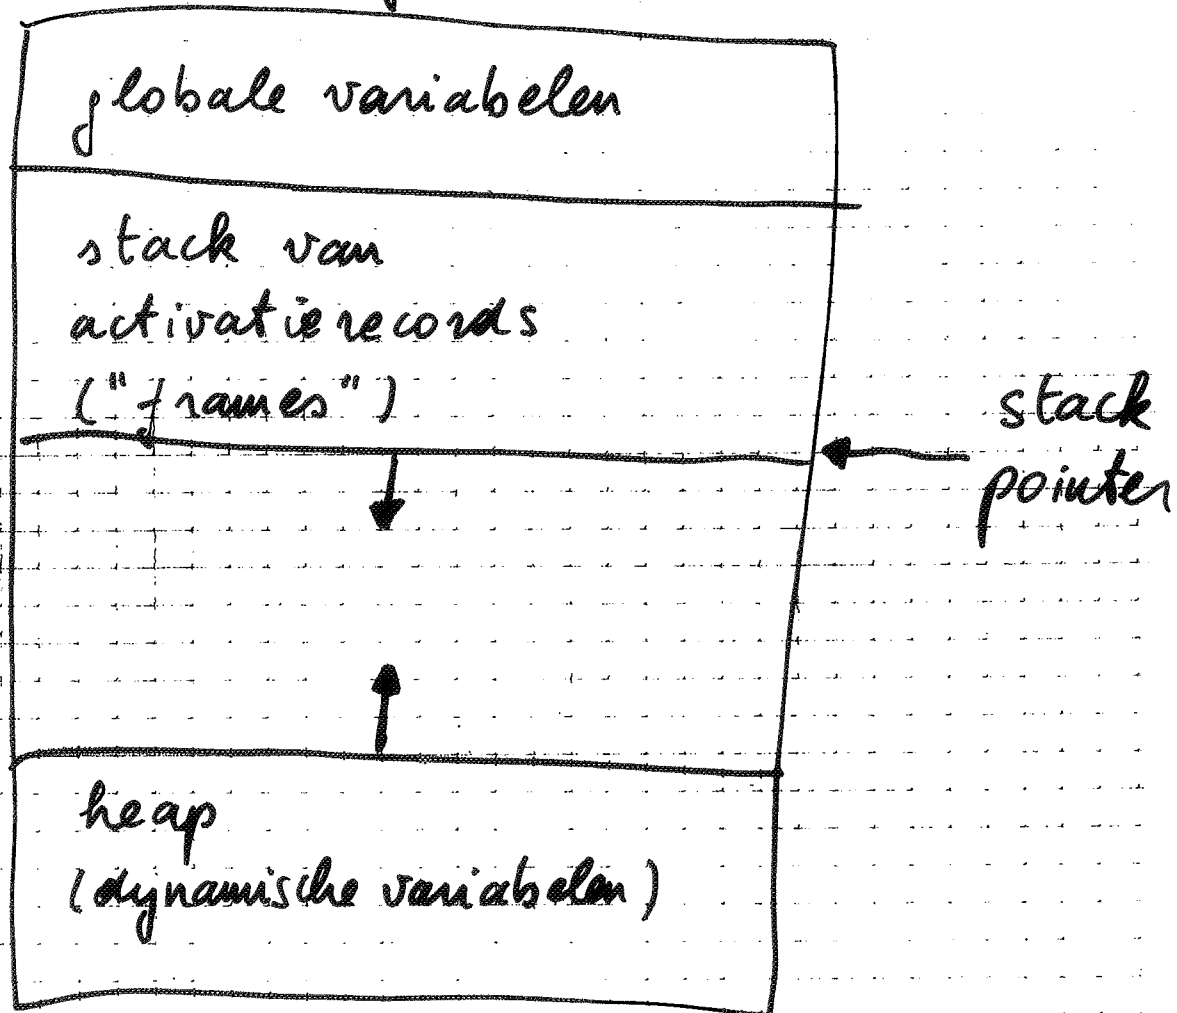 globale variabelen
stack van
activatierecords
("frames")
stack
pointer
heap
(dynamische variabelen)